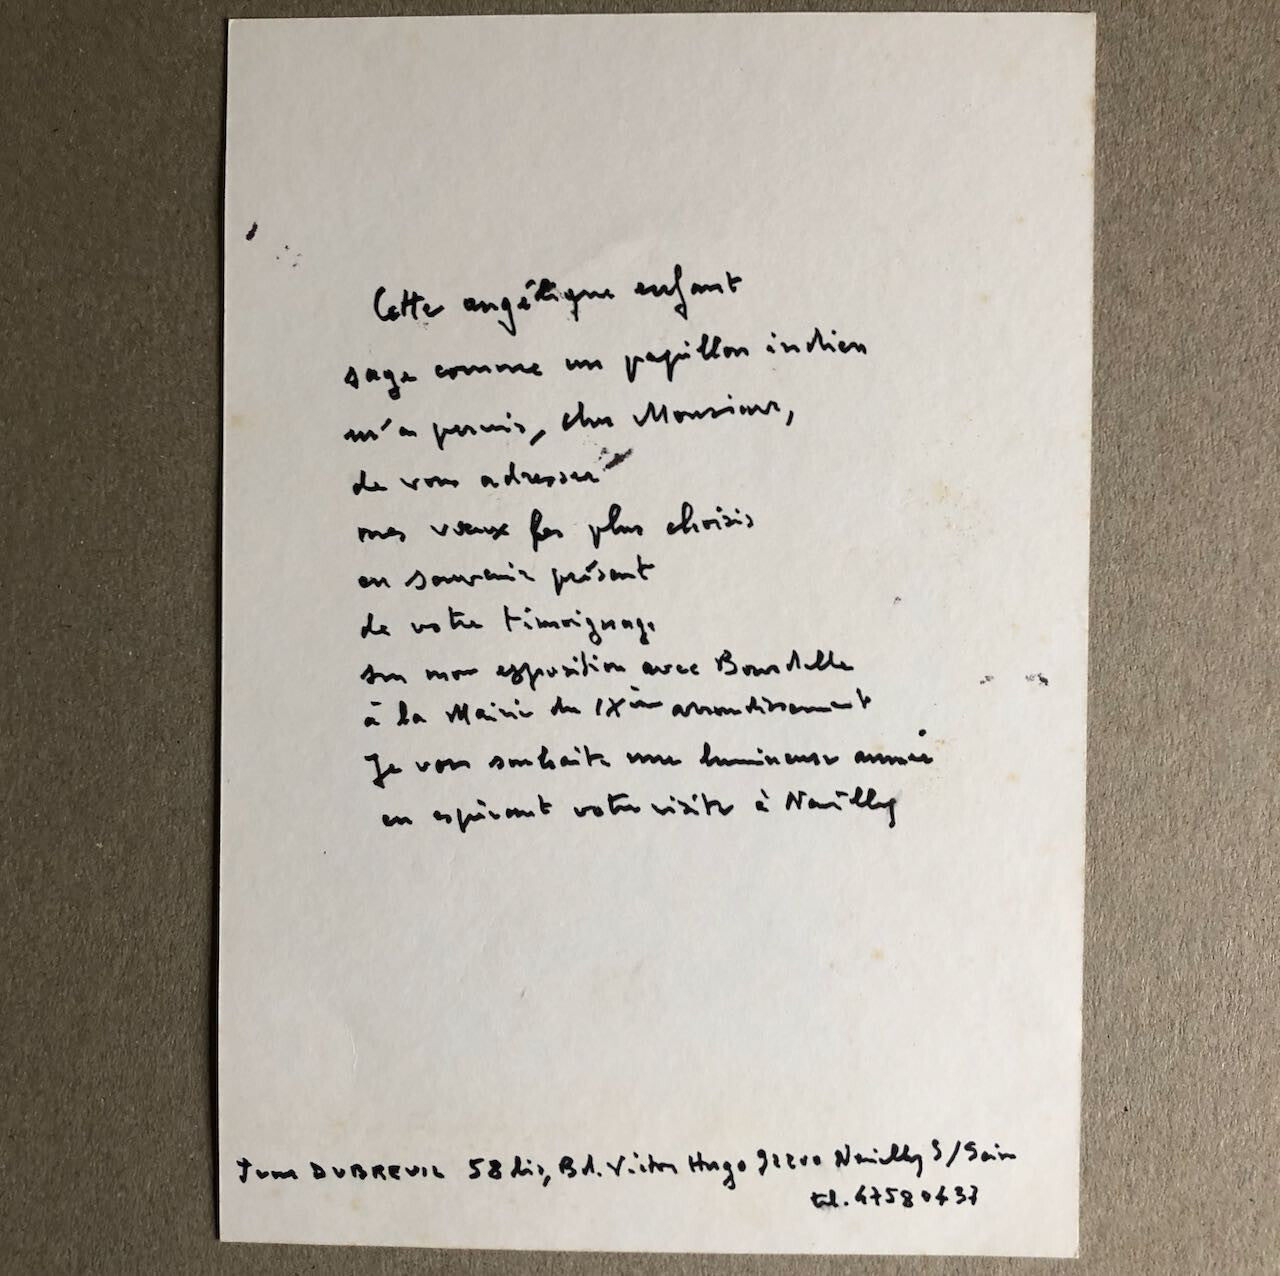 Cette angélique enfant
sage comme un papillon indien
m'a permis, cher Monsieur,
de vous adresser
mes vœux les plus choisis
en souvenir présent
de votre témoignage
sur mon exposition avec Bourdelle
à la Mairie du IXème arrondissement
Je vous souhaite une lumineuse année
en espérant votre visite à Neuilly
DUBREUIL 58 bis, Bd. Victor Hugo 92200 Neuilly S/Seine
tél.